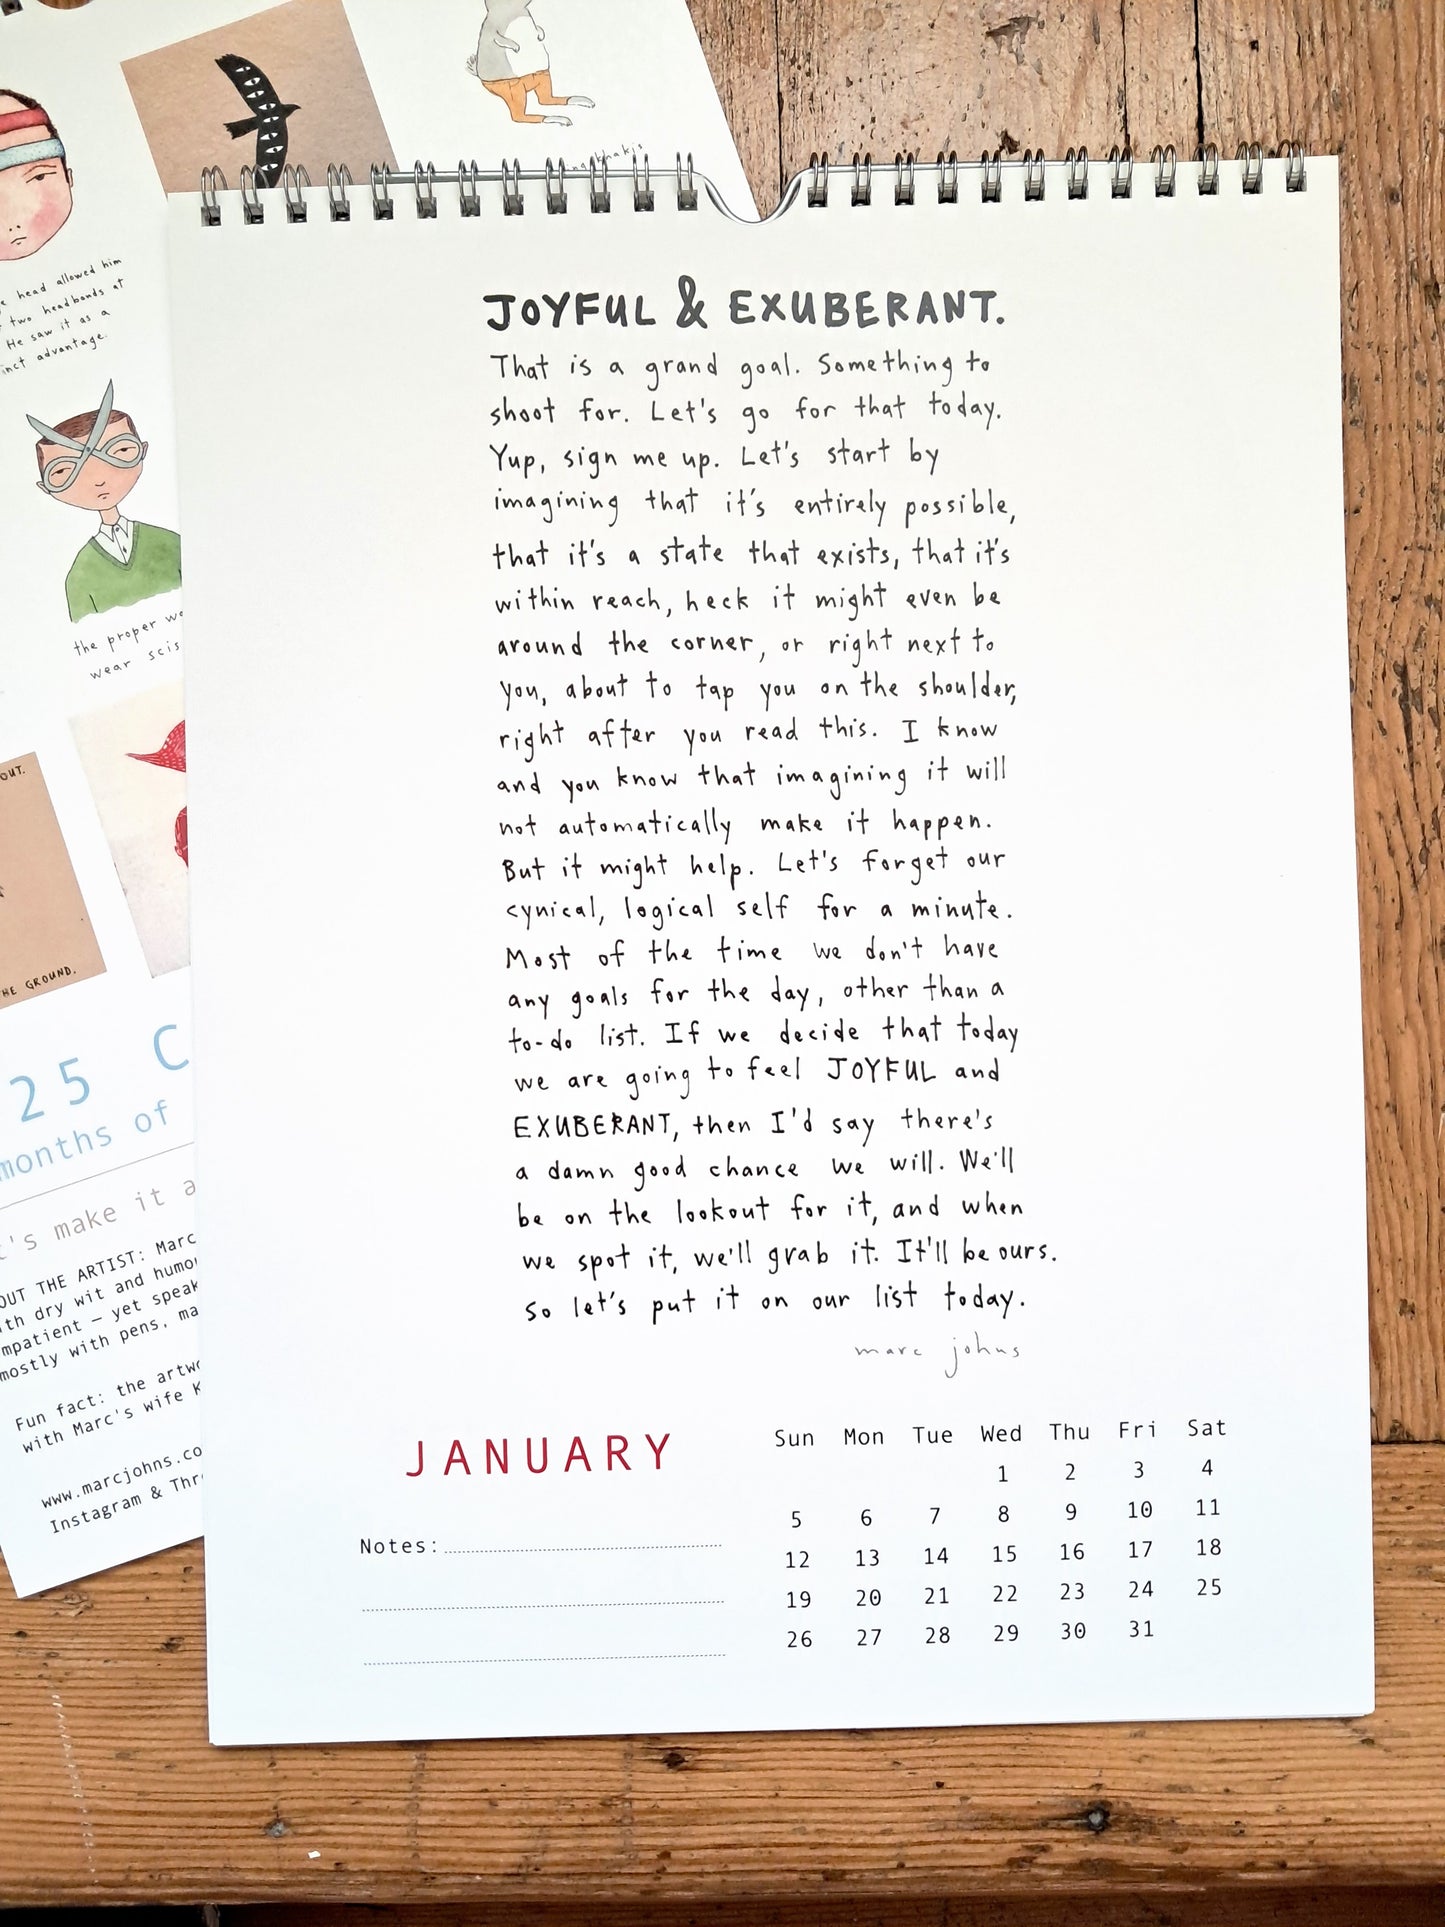 JOYFUL & EXUBERANT.
That is a grand goal. Something to
shoot for. Let's go for that today.
Yup, sign me up. Let's start by
imagining that it's entirely possible,
that it's a state that exists, that it's
within reach, heck it might even be
around the corner, or right next to
you, about to tap you on the shoulder,
right after you read this. I know
and you know that imagining it will
not automatically make it happen.
But it might help. Let's forget our
cynical, logical self for a minute.
Most of the time we don't have
any goals for the day, other than a
to-do list. If we decide that today
we are going to feel JOYFUL and
EXUBERANT, then I'd say there's
a damn good chance we will. We'll
be on the lookout for it, and when
we spot it, we'll grab it. It'll be ours.
So let's put it on our list today.
marc johns
JANUARY
Notes:
Sun Mon Tue Wed Thu Fri Sat
1 2 3 4
5 6 7 8 9 10 11
12 13 14 15 16 17 18
19 20 21 22 23 24 25
26 27 28 29 30 31
khakis
head allowed him
two headbands at
He saw it as a
advantage.
the proper
wear
OUT.
THE GROUND.
25 C
months of
's make it a
OUT THE ARTIST: Marc
with dry wit and
mpatient – yet speak
mostly with pens,
Fun fact: the
with Marc's wife K
www.marcjohns.co
Instagram &